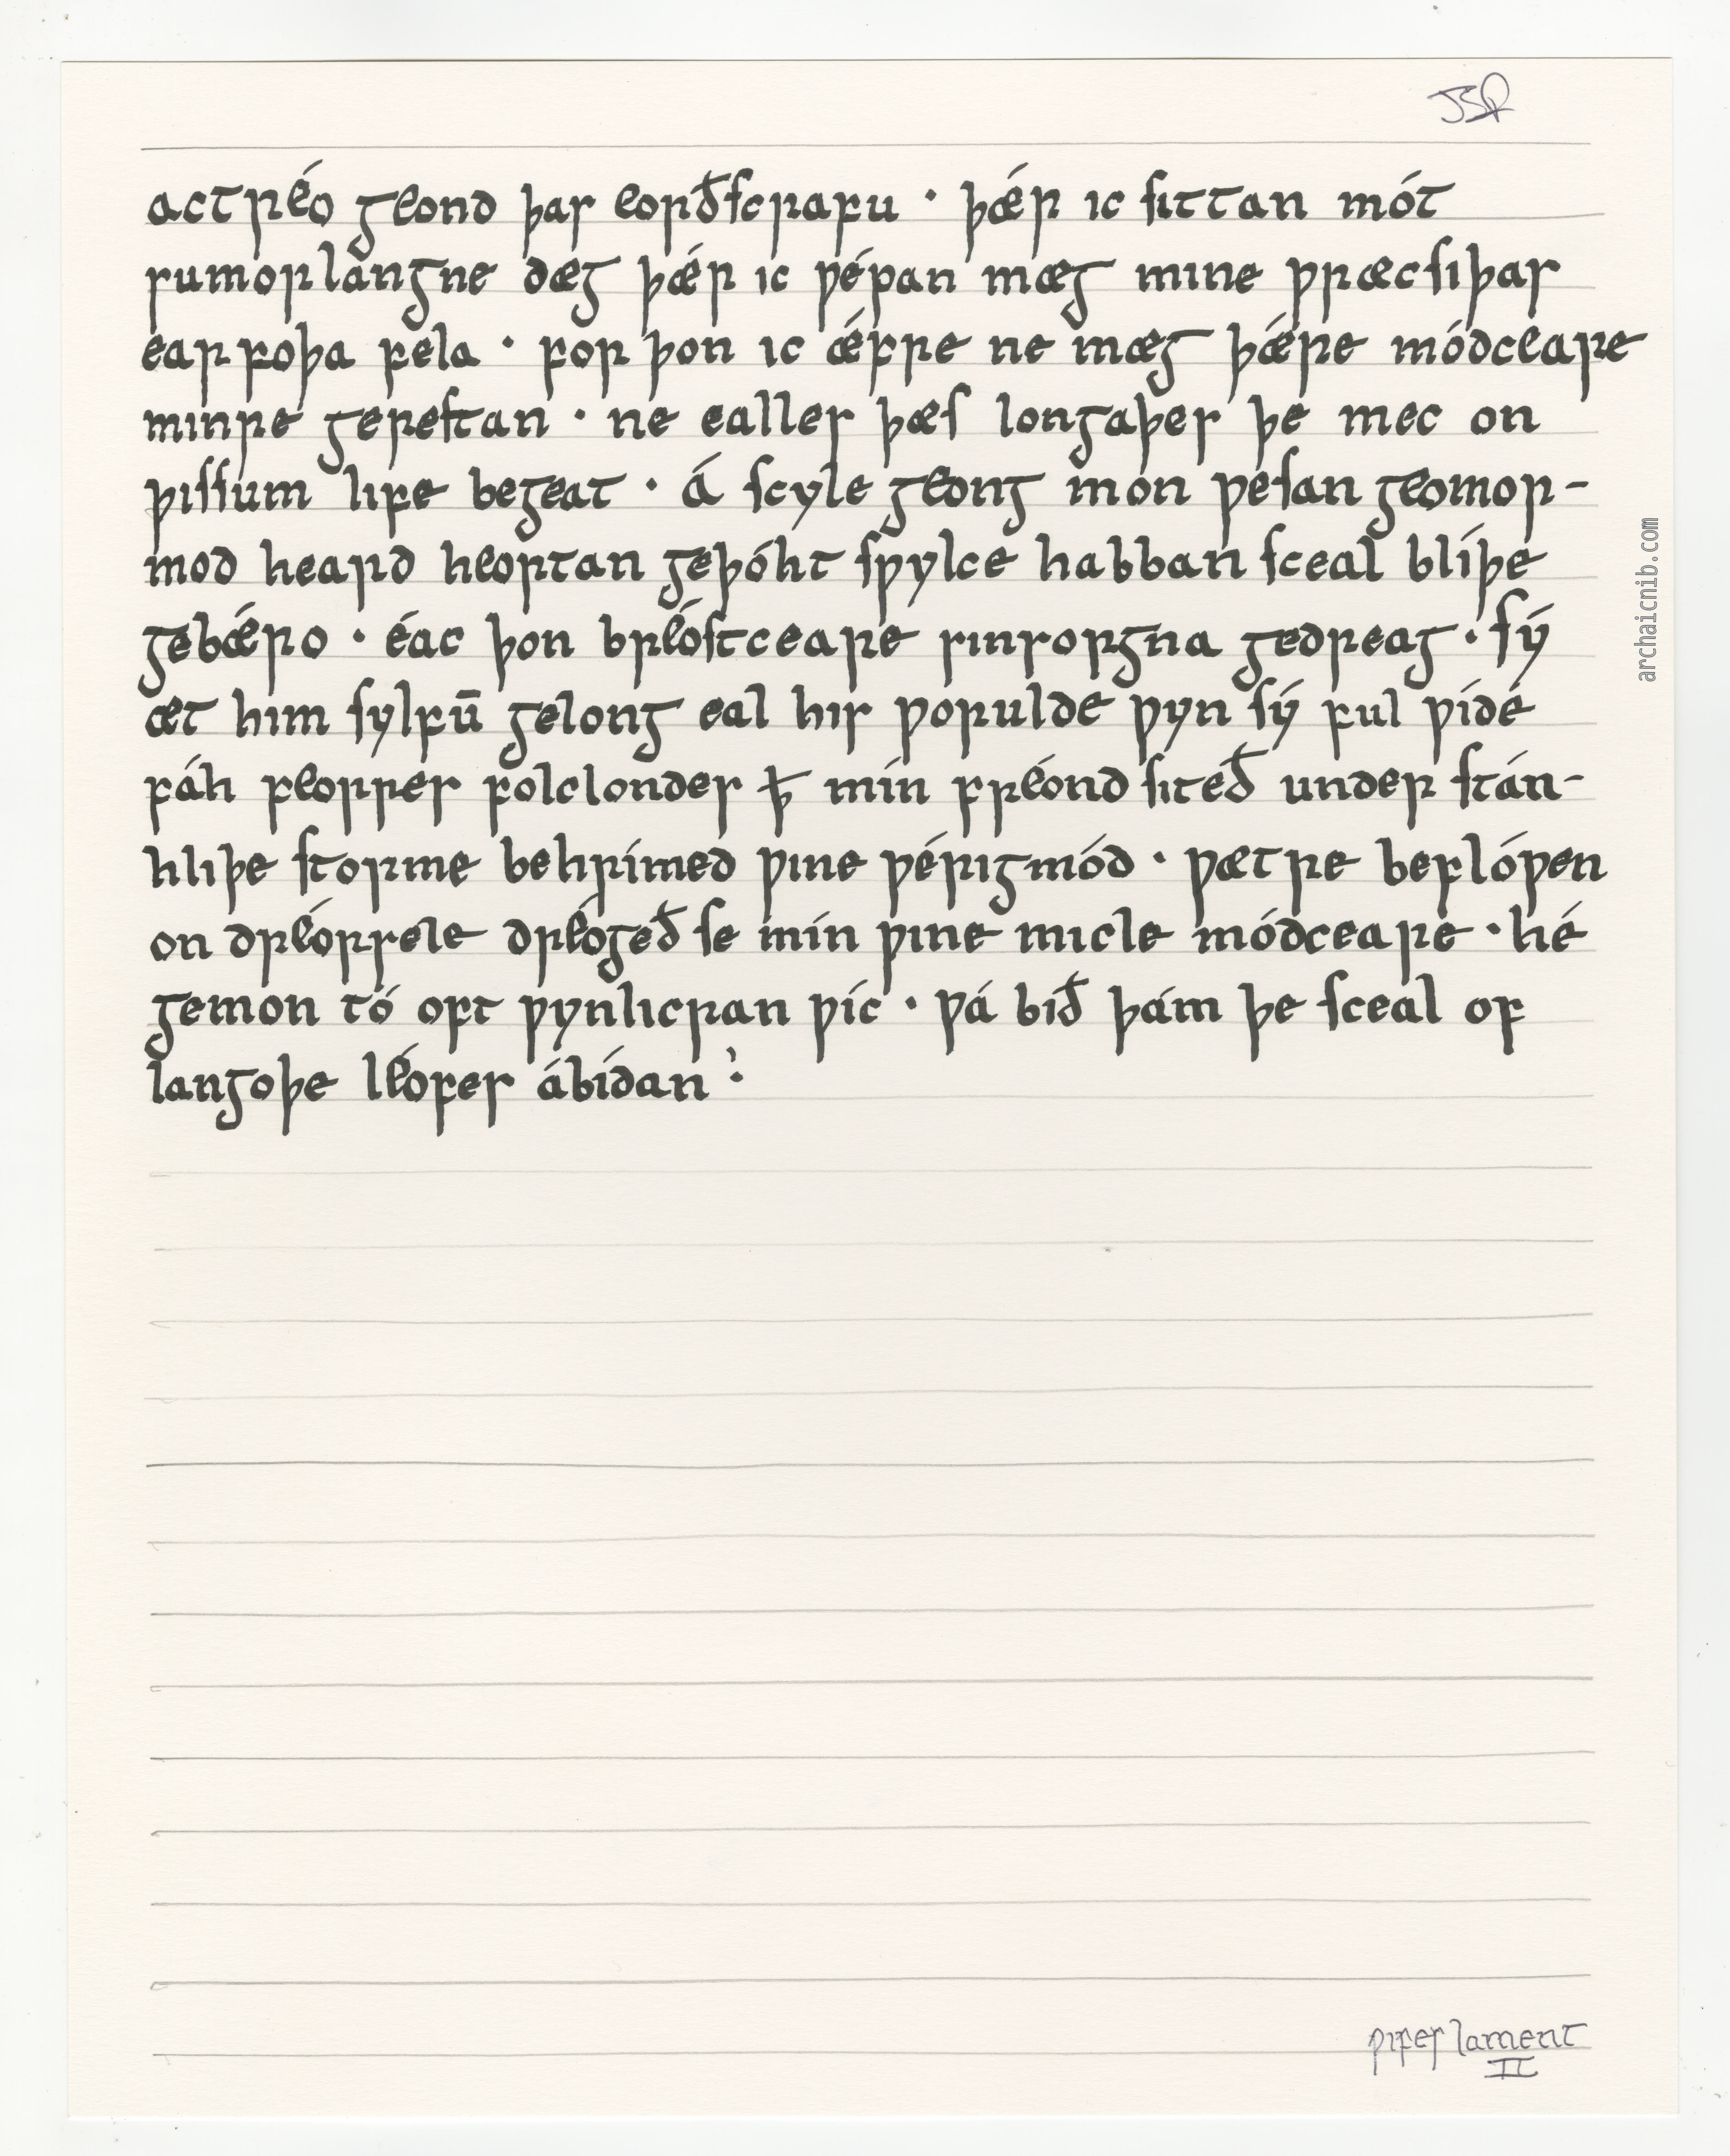 JSR
actréo geond þas eorðscrafu · þǽr ic sittan mót
sumorlangne dæg þǽr ic ƿépan mæg mine ƿræcsiþas
earfoþa fela · for þon ic ǽfre ne mæg þǽre módceare
minre gerestan · ne ealles þæs longaþes þe mec on
þissum life begeat · Á scyle geong mon ƿesan geomor-
mod heard heortan geþóht sƿylce habban sceal blíþe
gebǽro · éac þon bréostceare sinsorgna gedreag · sý
æt him sylfū gelong eal his ƿorulde ƿyn sý ful ƿíde
fáh feorres folclondes ꝥ mín fréond siteð under stán-
hliþe storme behrímed ƿine ƿérigmód · ƿætre beflóƿen
on dréorsele dréogeð se mín ƿine micle módceare · hé
gemon tó oft ƿynlicran ƿíc · ƿá bið þám þe sceal of
langoþe léofes ábídan ·
archaicnib.com
ƿifes lament
II